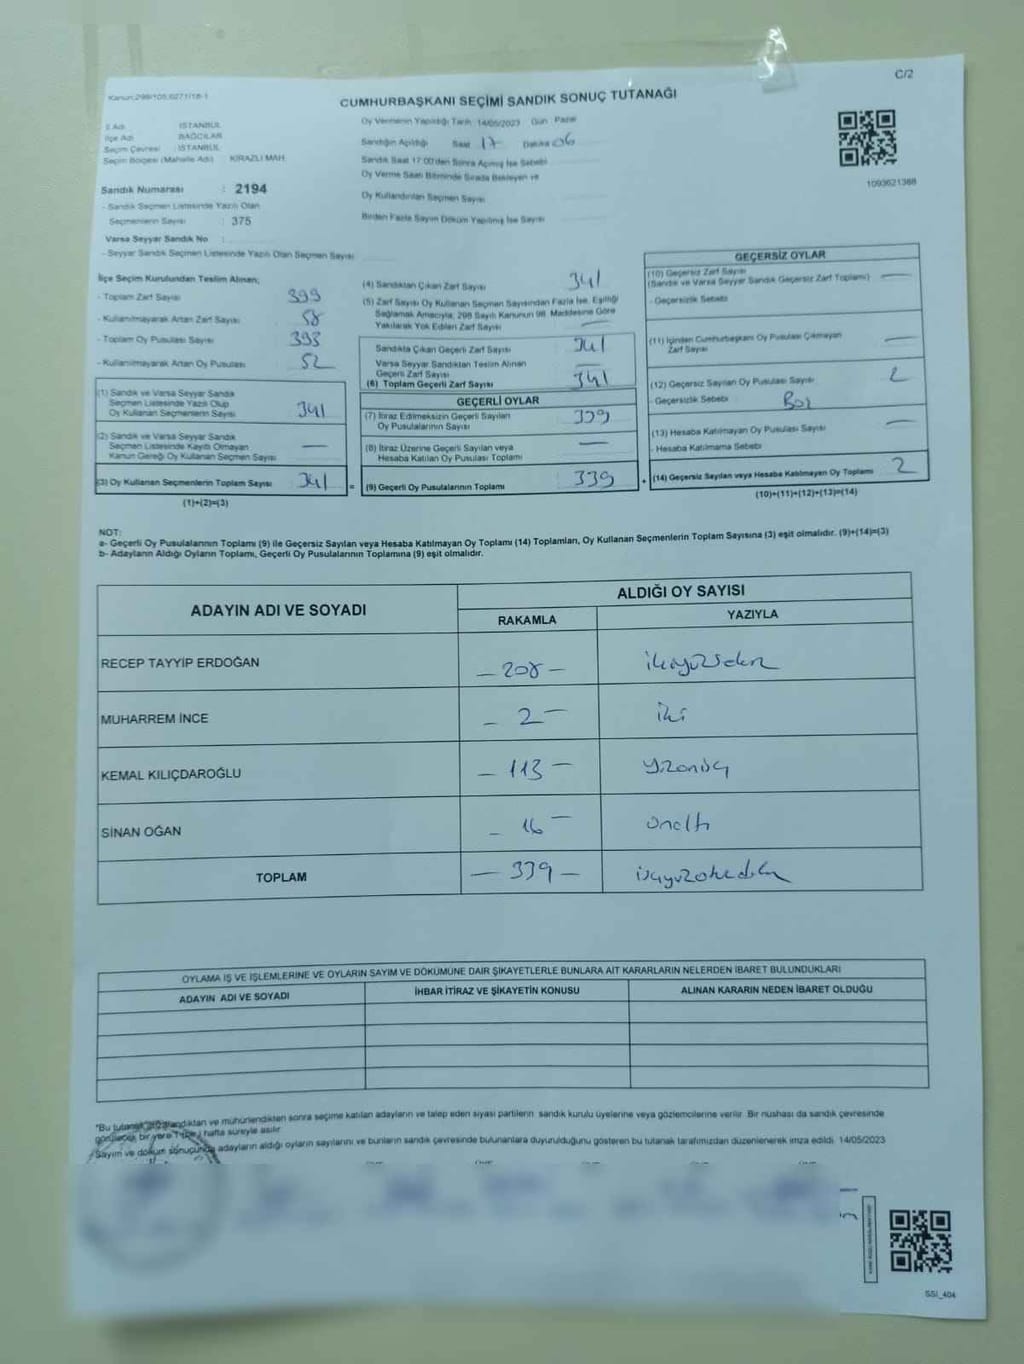 C/2
Kanun:298/105;6271/18-1
CUMHURBAŞKANI SEÇİMİ SANDIK SONUÇ TUTANAĞI
İl Adı : İSTANBUL
İlçe Adı : BAĞCILAR
Seçim Çevresi : İSTANBUL
Seçim Bölgesi (Mahalle Adı) : KİRAZLI MAH.
Sandık Numarası : 2194
- Sandık Seçmen Listesinde Yazılı Olan
Seçmenlerin Sayısı : 375
Varsa Seyyar Sandık No :
- Seyyar Sandık Seçmen Listesinde Yazılı Olan Seçmen Sayısı
Oy Vermenin Yapıldığı Tarih: 14/05/2023 Gün: Pazar
Sandığın Açıldığı Saat 17 Dakika 06
Sandık Saat 17:00'den Sonra Açılmış İse Sebebi
Oy Verme Saati Bitiminde Sırada Bekleyen ve
Oy Kullandırılan Seçmen Sayısı
Birden Fazla Sayım Döküm Yapılmış İse Sayısı
1093621388
İlçe Seçim Kurulundan Teslim Alınan;
- Toplam Zarf Sayısı 399
- Kullanılmayarak Artan Zarf Sayısı 58
- Toplam Oy Pusulası Sayısı 393
- Kullanılmayarak Artan Oy Pusulası 52
(1) Sandık ve Varsa Seyyar Sandık
Seçmen Listesinde Yazılı Olup
Oy Kullanan Seçmenlerin Sayısı 341
(2) Sandık ve Varsa Seyyar Sandık
Seçmen Listesinde Kayıtlı Olmayan
Kanun Gereği Oy Kullanan Seçmen Sayısı —
(3) Oy Kullanan Seçmenlerin Toplam Sayısı 341
(1)+(2)=(3)
(4) Sandıktan Çıkan Zarf Sayısı 341
(5) Zarf Sayısı Oy Kullanan Seçmen Sayısından Fazla İse, Eşitliği
Sağlamak Amacıyla, 298 Sayılı Kanunun 98. Maddesine Göre
Yakılarak Yok Edilen Zarf Sayısı —
Sandıkta Çıkan Geçerli Zarf Sayısı 341
Varsa Seyyar Sandıktan Teslim Alınan
Geçerli Zarf Sayısı
(6) Toplam Geçerli Zarf Sayısı 341
GEÇERLİ OYLAR
(7) İtiraz Edilmeksizin Geçerli Sayılan
Oy Pusulalarının Sayısı 339
(8) İtiraz Üzerine Geçerli Sayılan veya
Hesaba Katılan Oy Pusulası Toplamı —
= (9) Geçerli Oy Pusulalarının Toplamı 339
GEÇERSİZ OYLAR
(10) Geçersiz Zarf Sayısı
(Sandık ve Varsa Seyyar Sandık Geçersiz Zarf Toplamı) —
- Geçersizlik Sebebi
(11) İçinden Cumhurbaşkanı Oy Pusulası Çıkmayan
Zarf Sayısı —
(12) Geçersiz Sayılan Oy Pusulası Sayısı 2
- Geçersizlik Sebebi Boş
(13) Hesaba Katılmayan Oy Pusulası Sayısı —
- Hesaba Katılmama Sebebi
+ (14) Geçersiz Sayılan veya Hesaba Katılmayan Oy Toplamı 2
(10)+(11)+(12)+(13)=(14)
NOT:
a- Geçerli Oy Pusulalarının Toplamı (9) ile Geçersiz Sayılan veya Hesaba Katılmayan Oy Toplamı (14) Toplamları, Oy Kullanan Seçmenlerin Toplam Sayısına (3) eşit olmalıdır. (9)+(14)=(3)
b- Adayların Aldığı Oyların Toplamı, Geçerli Oy Pusulalarının Toplamına (9) eşit olmalıdır.
ADAYIN ADI VE SOYADI
ALDIĞI OY SAYISI
RAKAMLA YAZIYLA
RECEP TAYYİP ERDOĞAN — 208 — ikiyüzsekiz
MUHARREM İNCE — 2 — iki
KEMAL KILIÇDAROĞLU — 113 — yüzonüç
SİNAN OĞAN — 16 — onaltı
TOPLAM — 339 —
OYLAMA İŞ VE İŞLEMLERİNE VE OYLARIN SAYIM VE DÖKÜMÜNE DAİR ŞİKAYETLERLE BUNLARA AİT KARARLARIN NELERDEN İBARET BULUNDUKLARI
ADAYIN ADI VE SOYADI İHBAR İTİRAZ VE ŞİKAYETİN KONUSU ALINAN KARARIN NEDEN İBARET OLDUĞU
"Bu tutanak imzalandıktan ve mühürlendikten sonra seçime katılan adayların ve talep eden siyasi partilerin sandık kurulu üyelerine veya gözlemcilerine verilir. Bir nüshası da sandık çevresinde
görülecek bir yere 1 (bir) hafta süreyle asılır.
Sayım ve döküm sonucunda adayların aldığı oyların sayılarını ve bunların sandık çevresinde bulunanlara duyurulduğunu gösteren bu tutanak tarafımızdan düzenlenerek imza edildi. 14/05/2023
SSI_404